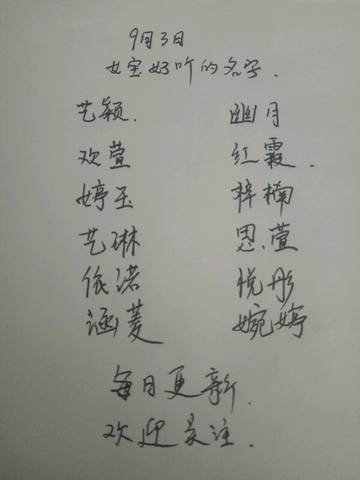 9月3日
女宝好听的名字.
艺颖. 幽月
欢萱 红霞.
婷玉 梓楠
艺琳 思萱
依诺 悦彤
涵菱 婉婷
每日更新.
欢迎关注.